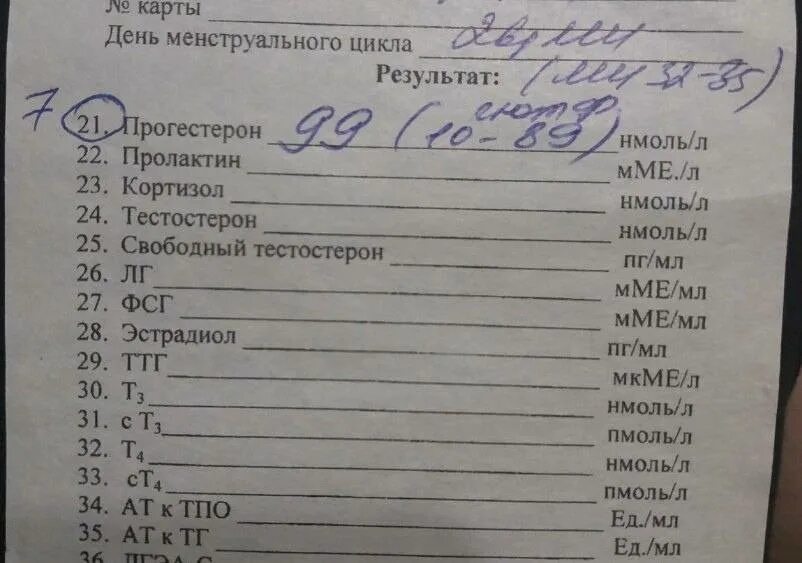 № карты
День менструального цикла
Результат: (МЦ 32-35)
7 21. Прогестерон 99 (10-89) нмоль/л
22. Пролактин мМЕ./л
23. Кортизол нмоль/л
24. Тестостерон нмоль/л
25. Свободный тестостерон пг/мл
26. ЛГ мМЕ/мл
27. ФСГ мМЕ/мл
28. Эстрадиол пг/мл
29. ТТГ мкМЕ/л
30. Т3 нмоль/л
31. с Т3 пмоль/л
32. Т4 нмоль/л
33. сТ4 пмоль/л
34. АТ к ТПО Ед./мл
35. АТ к ТГ Ед./мл
36